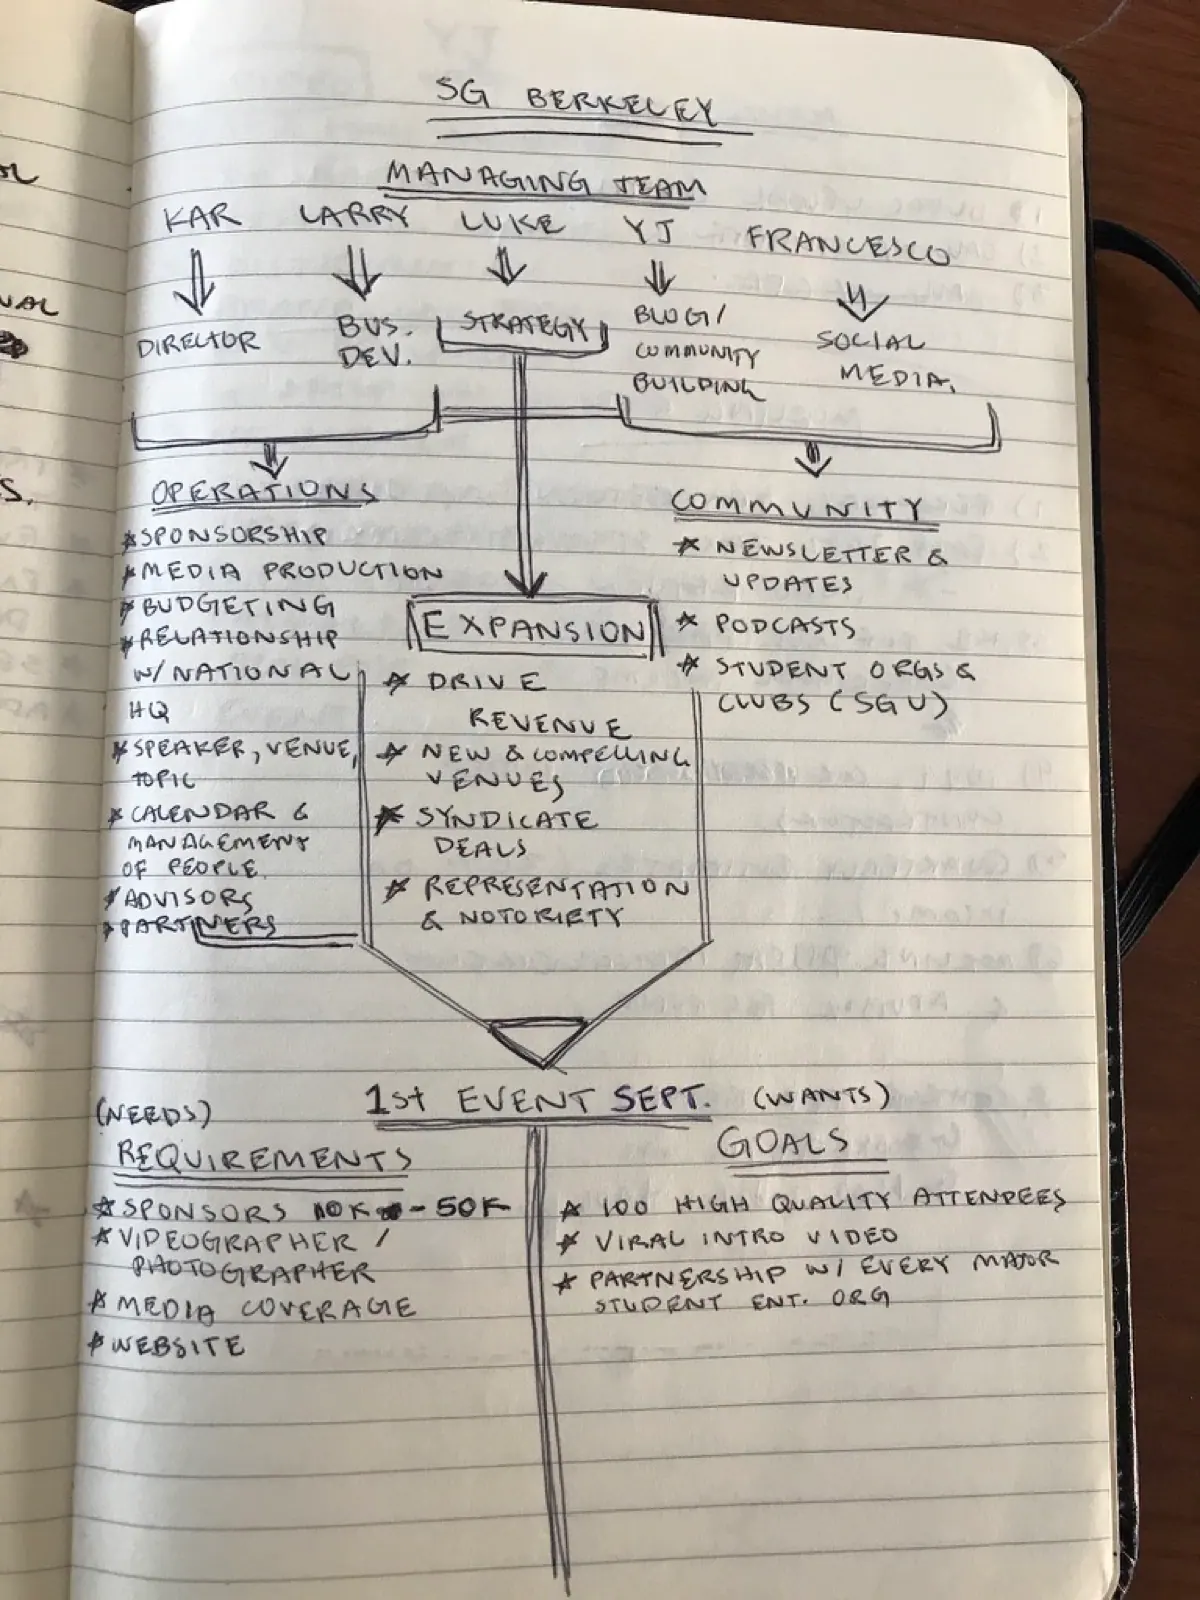 SG BERKELEY
MANAGING TEAM
KAR LARRY LUKE YJ FRANCESCO
DIRECTOR
BUS.
DEV.
STRATEGY
BLOG/
COMMUNITY
BUILDING
SOCIAL
MEDIA.
OPERATIONS
* SPONSORSHIP
* MEDIA PRODUCTION
* BUDGETING
* RELATIONSHIP
W/ NATIONAL
HQ
* SPEAKER, VENUE,
TOPIC
* CALENDAR &
MANAGEMENT
OF PEOPLE.
* ADVISORS
* PARTNERS
EXPANSION
* DRIVE
REVENUE
* NEW & COMPELLING
VENUES
* SYNDICATE
DEALS
* REPRESENTATION
& NOTORIETY
COMMUNITY
* NEWSLETTER &
UPDATES
* PODCASTS
* STUDENT ORGS &
CLUBS (SGU)
1st EVENT SEPT.
(NEEDS)
REQUIREMENTS
* SPONSORS 10K - 50K
* VIDEOGRAPHER /
PHOTOGRAPHER
* MEDIA COVERAGE
* WEBSITE
(WANTS)
GOALS
* 100 HIGH QUALITY ATTENDEES
* VIRAL INTRO VIDEO
* PARTNERSHIP W/ EVERY MAJOR
STUDENT ENT. ORG